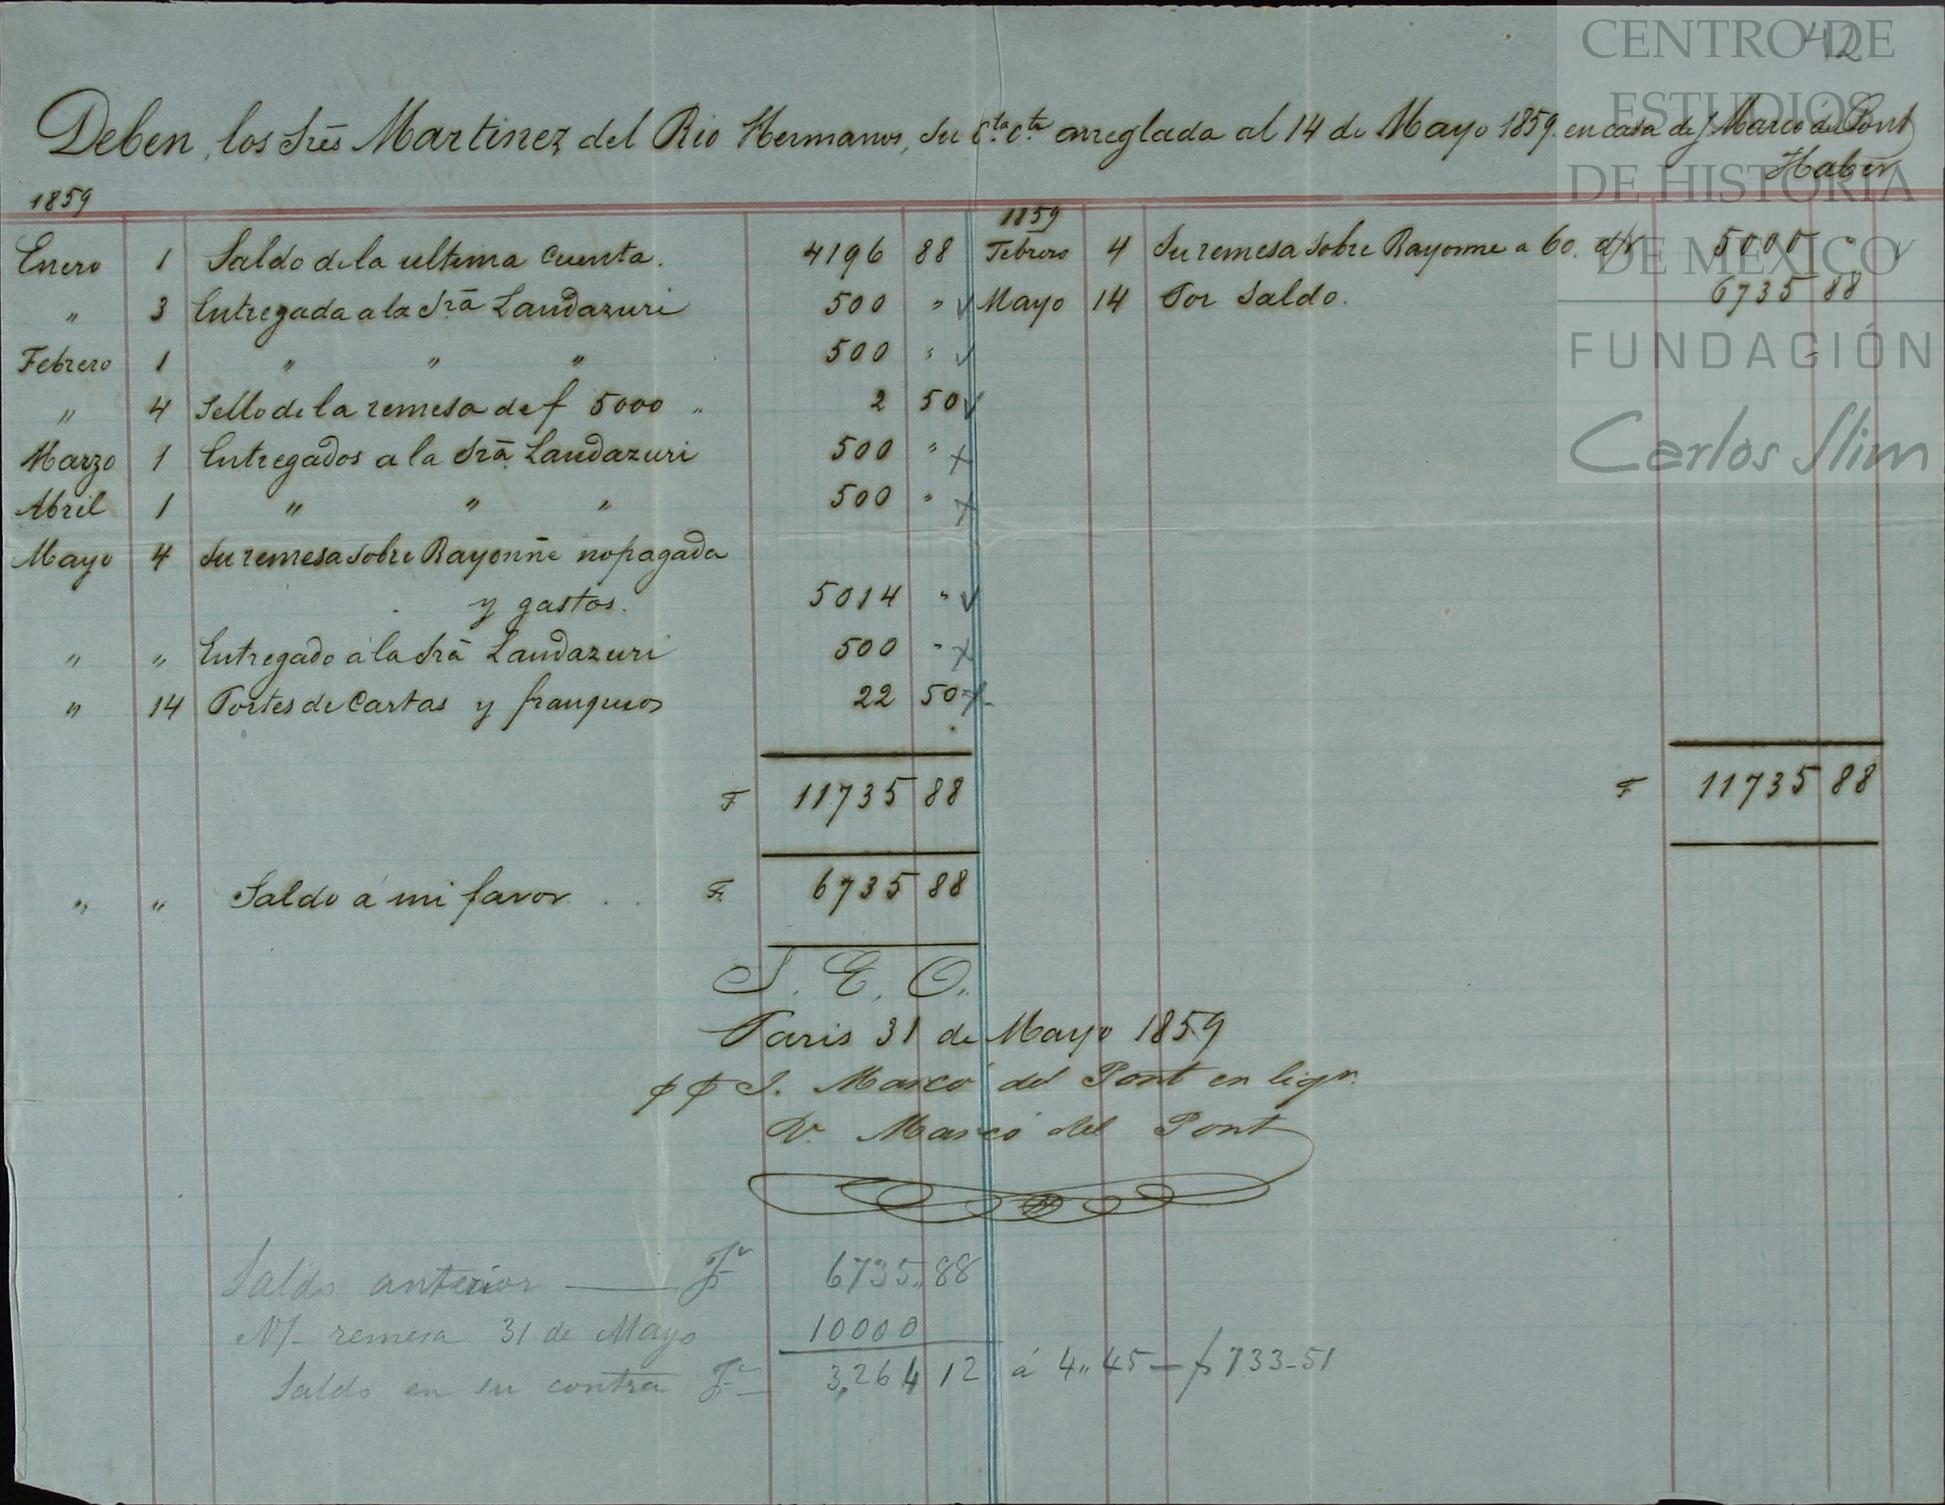 42
CENTRO DE
ESTUDIOS
DE HISTORIA
DE MÉXICO
FUNDACIÓN
Carlos Slim
Deben, los Sres Martinez del Rio Hermanos, su Cta. cta. arreglada al 14 de Mayo 1859. en casa de J. Marcó del Pont
Haber
1859
Enero 1 Saldo de la ultima cuenta. 4196 88
" 3 Entregada a la Sra Landazuri 500 "
Febrero 1 " " " 500 "
" 4 Sello de la remesa de f 5000 " 2 50
Marzo 1 Entregados a la Sra. Landazuri 500 "
Abril 1 " " " 500 "
Mayo 4 Su remesa sobre Bayonne no pagada
y gastos. 5014 "
" " Entregado á la Sra Landazuri 500 "
" 14 Portes de Cartas y franqueos 22 50
F 11735 88
" " Saldo á mi favor . . F. 6735 88
1859
Febrero 4 Su remesa sobre Bayonne a 60. d/v 5000 "
Mayo 14 Por Saldo. 6735 88
F 11735 88
S. E. O.
Paris 31 de Mayo 1859
pp J. Marcó del Pont en liqn.
V. Marcó del Pont
Saldo anterior — F 6735,,88
N/ remesa 31 de Mayo 10000
Saldo en su contra F 3,264 12 á 4,,45 — $ 733-51